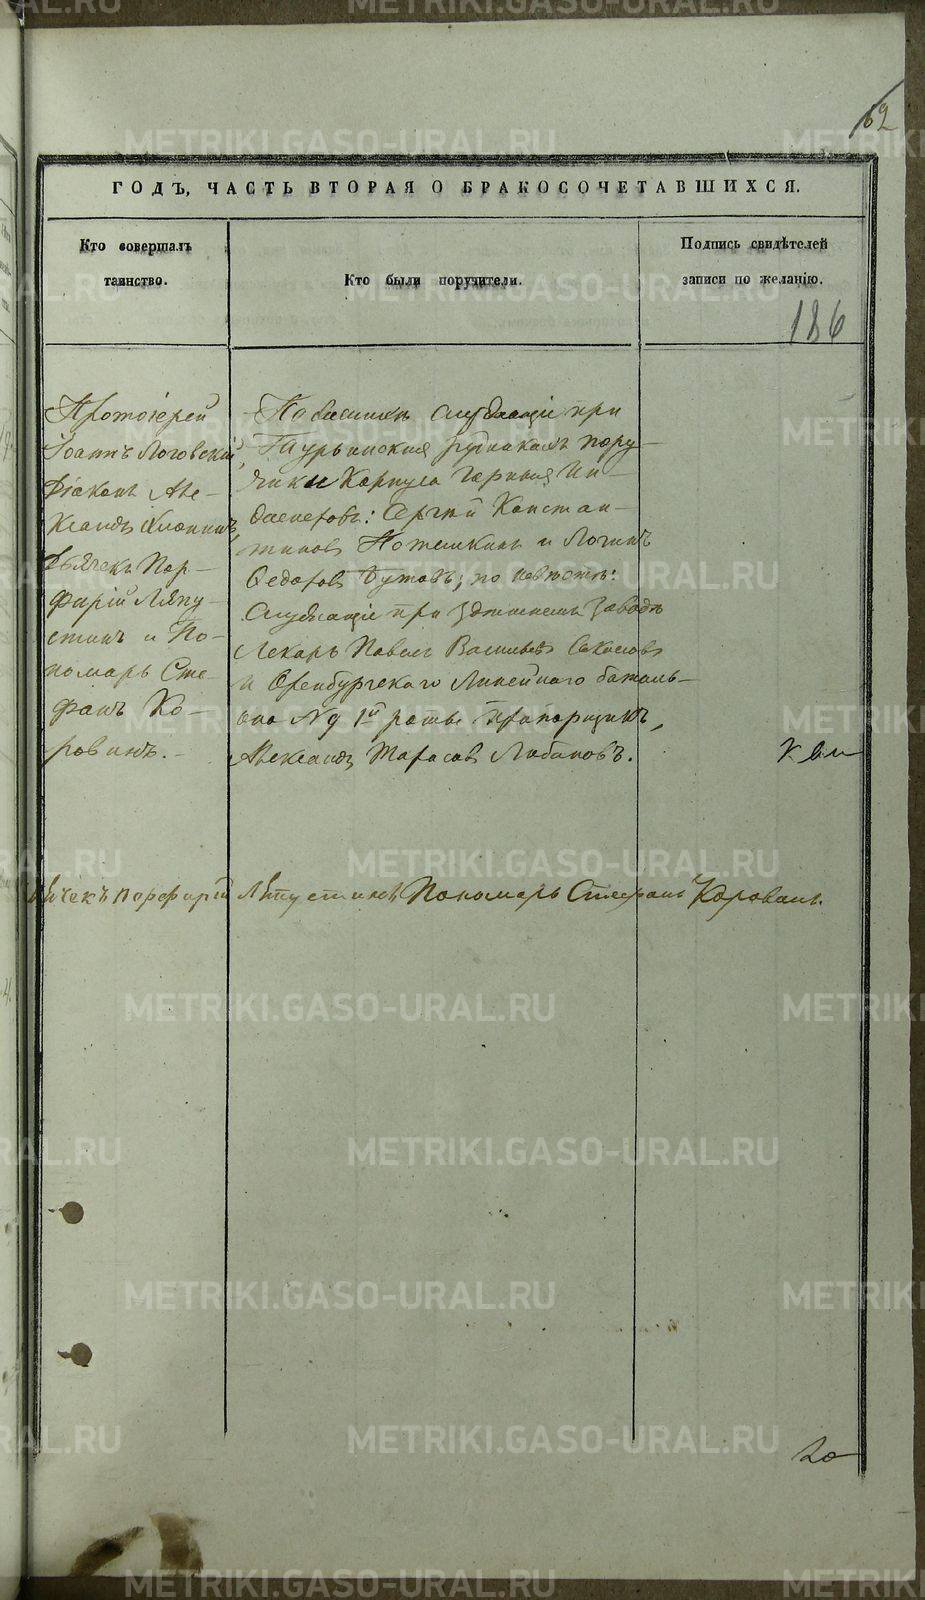 62
ГОДЪ, ЧАСТЬ ВТОРАЯ О БРАКОСОЧЕТАВШИХСЯ.
Кто совершалъ
таинство.
Кто были поручители.
Подпись свидѣтелей
записи по желанію.
186
Протоіерей
Іоаннъ Логовскій,
Діаконъ Але-
ксандръ
Дьячекъ Пор-
фирій Ляпу-
стинъ и По-
номарь Сте-
фанъ Ко-
ровинъ.-
По женихѣ служащіе при
Турьинскихъ рудникахъ пору-
чики Корпуса Горныхъ Ин-
женеровъ: Сергѣй Констан-
тиновъ Потемкинъ и Логинъ
Федоровъ Бутовъ; по невѣстѣ:
Служащіе при здѣшнемъ заводѣ
Лекарь Павелъ Васильевъ
и Оренбургского Линейного баталь-
она № 9 1й роты Прапорщикъ,
Александръ Тарасовъ Лобановъ.
Дьячекъ Порфирій Ляпустинъ Пономарь Стефанъ Коровинъ.
METRIKI.GASO-URAL.RU